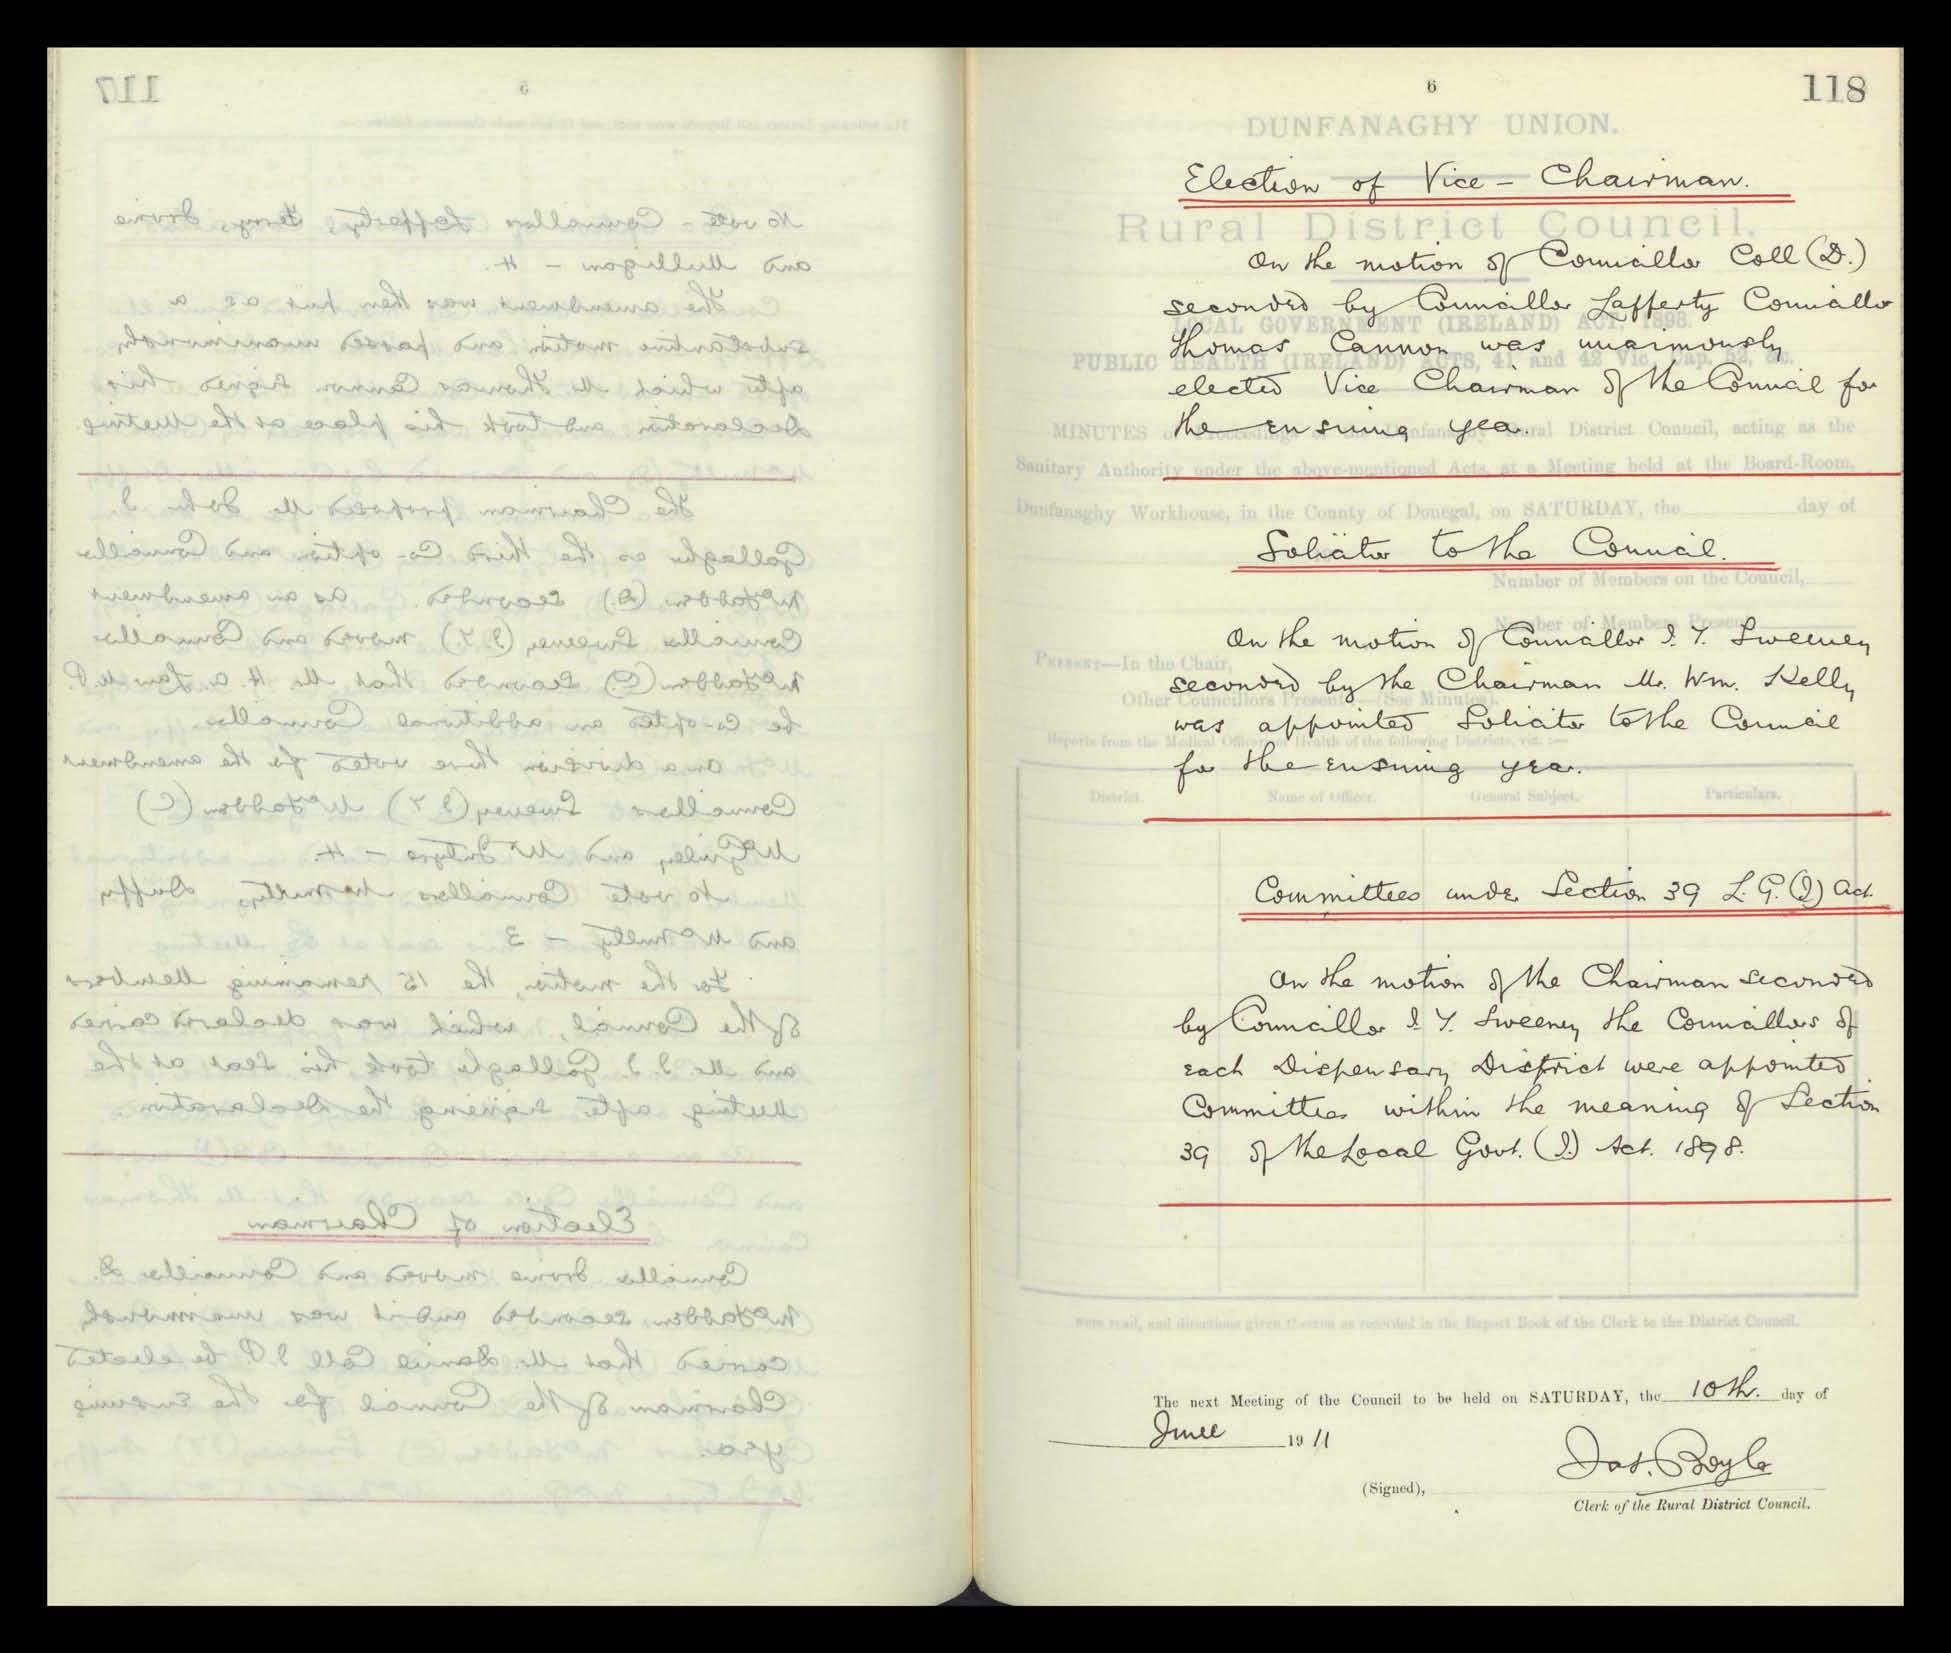 117
5
No vote - Councillors Lafferty, Ferry, Irvine
and Mulligan - 4.
The amendment was then put as a
substantive motion and passed unanimously
after which Mr Thomas Cannon signed his
Declaration and took his place at the Meeting.
The Chairman proposed Mr John J.
Gallagher as the third Co-option and Councillor
McFadden (D.) seconded. As an amendment
Councillor Sweeney (J.Y.) moved and Councillor
McFadden (C.) seconded that Mr H. A. Law M.P.
be co-opted an additional Councillor.
On a division there voted for the amendment
Councillors Sweeney (J.Y.) McFadden (C)
McGinley, and McIntyre - 4
No vote Councillors McNulty, Duffy
and McNulty - 3
For the motion, the 15 remaining Members
of the Council, which was declared carried
and Mr J. J. Gallagher took his seat at the
Meeting after signing the Declaration.
Election of Chairman
Councillor Irvine moved and Councillor D.
McFadden seconded and it was unanimously
carried that Mr Daniel Coll J.P. be elected
Chairman of the Council for the ensuing
year.
6
118
DUNFANAGHY UNION.
Election of Vice - Chairman.
Rural District Council.
On the motion of Councillor Coll (D.)
seconded by Councillor Lafferty Councillor
LOCAL GOVERNMENT (IRELAND) ACT, 1898.
Thomas Cannon was unaimously
PUBLIC HEALTH (IRELAND) ACTS, 41 and 42 Vic., Cap. 52, &c.
elected Vice Chairman of the Council for
the ensuing year.
MINUTES of Proceedings of the Dunfanaghy Rural District Council, acting as the
Sanitary Authority under the above-mentioned Acts, at a Meeting held at the Board-Room,
Dunfanaghy Workhouse, in the County of Donegal, on SATURDAY, the day of
Solicitor to the Council.
Number of Members on the Council,
Number of Members Present,
On the motion of Councillor J. Y. Sweeney
PRESENT—In the Chair,
seconded by the Chairman Mr. Wm. Kelly
Other Councillors Present—(See Minutes).
was appointed Solicitor to the Council
Reports from the Medical Officers of Health of the following Districts, viz. :—
for the ensuing year.
District. Name of Officer. General Subject. Particulars.
Committees under Section 39 L. G. (I) Act.
On the motion of the Chairman seconded
by Councillor J. Y. Sweeney the Councillors of
each Dispensary District were appointed
Committees within the meaning of Section
39 of the Local Govt. (I.) Act. 1898.
were read, and directions given thereon as recorded in the Report Book of the Clerk to the District Council.
The next Meeting of the Council to be held on SATURDAY, the 10th. day of
June 1911
Jas. Boyle
(Signed),
Clerk of the Rural District Council.